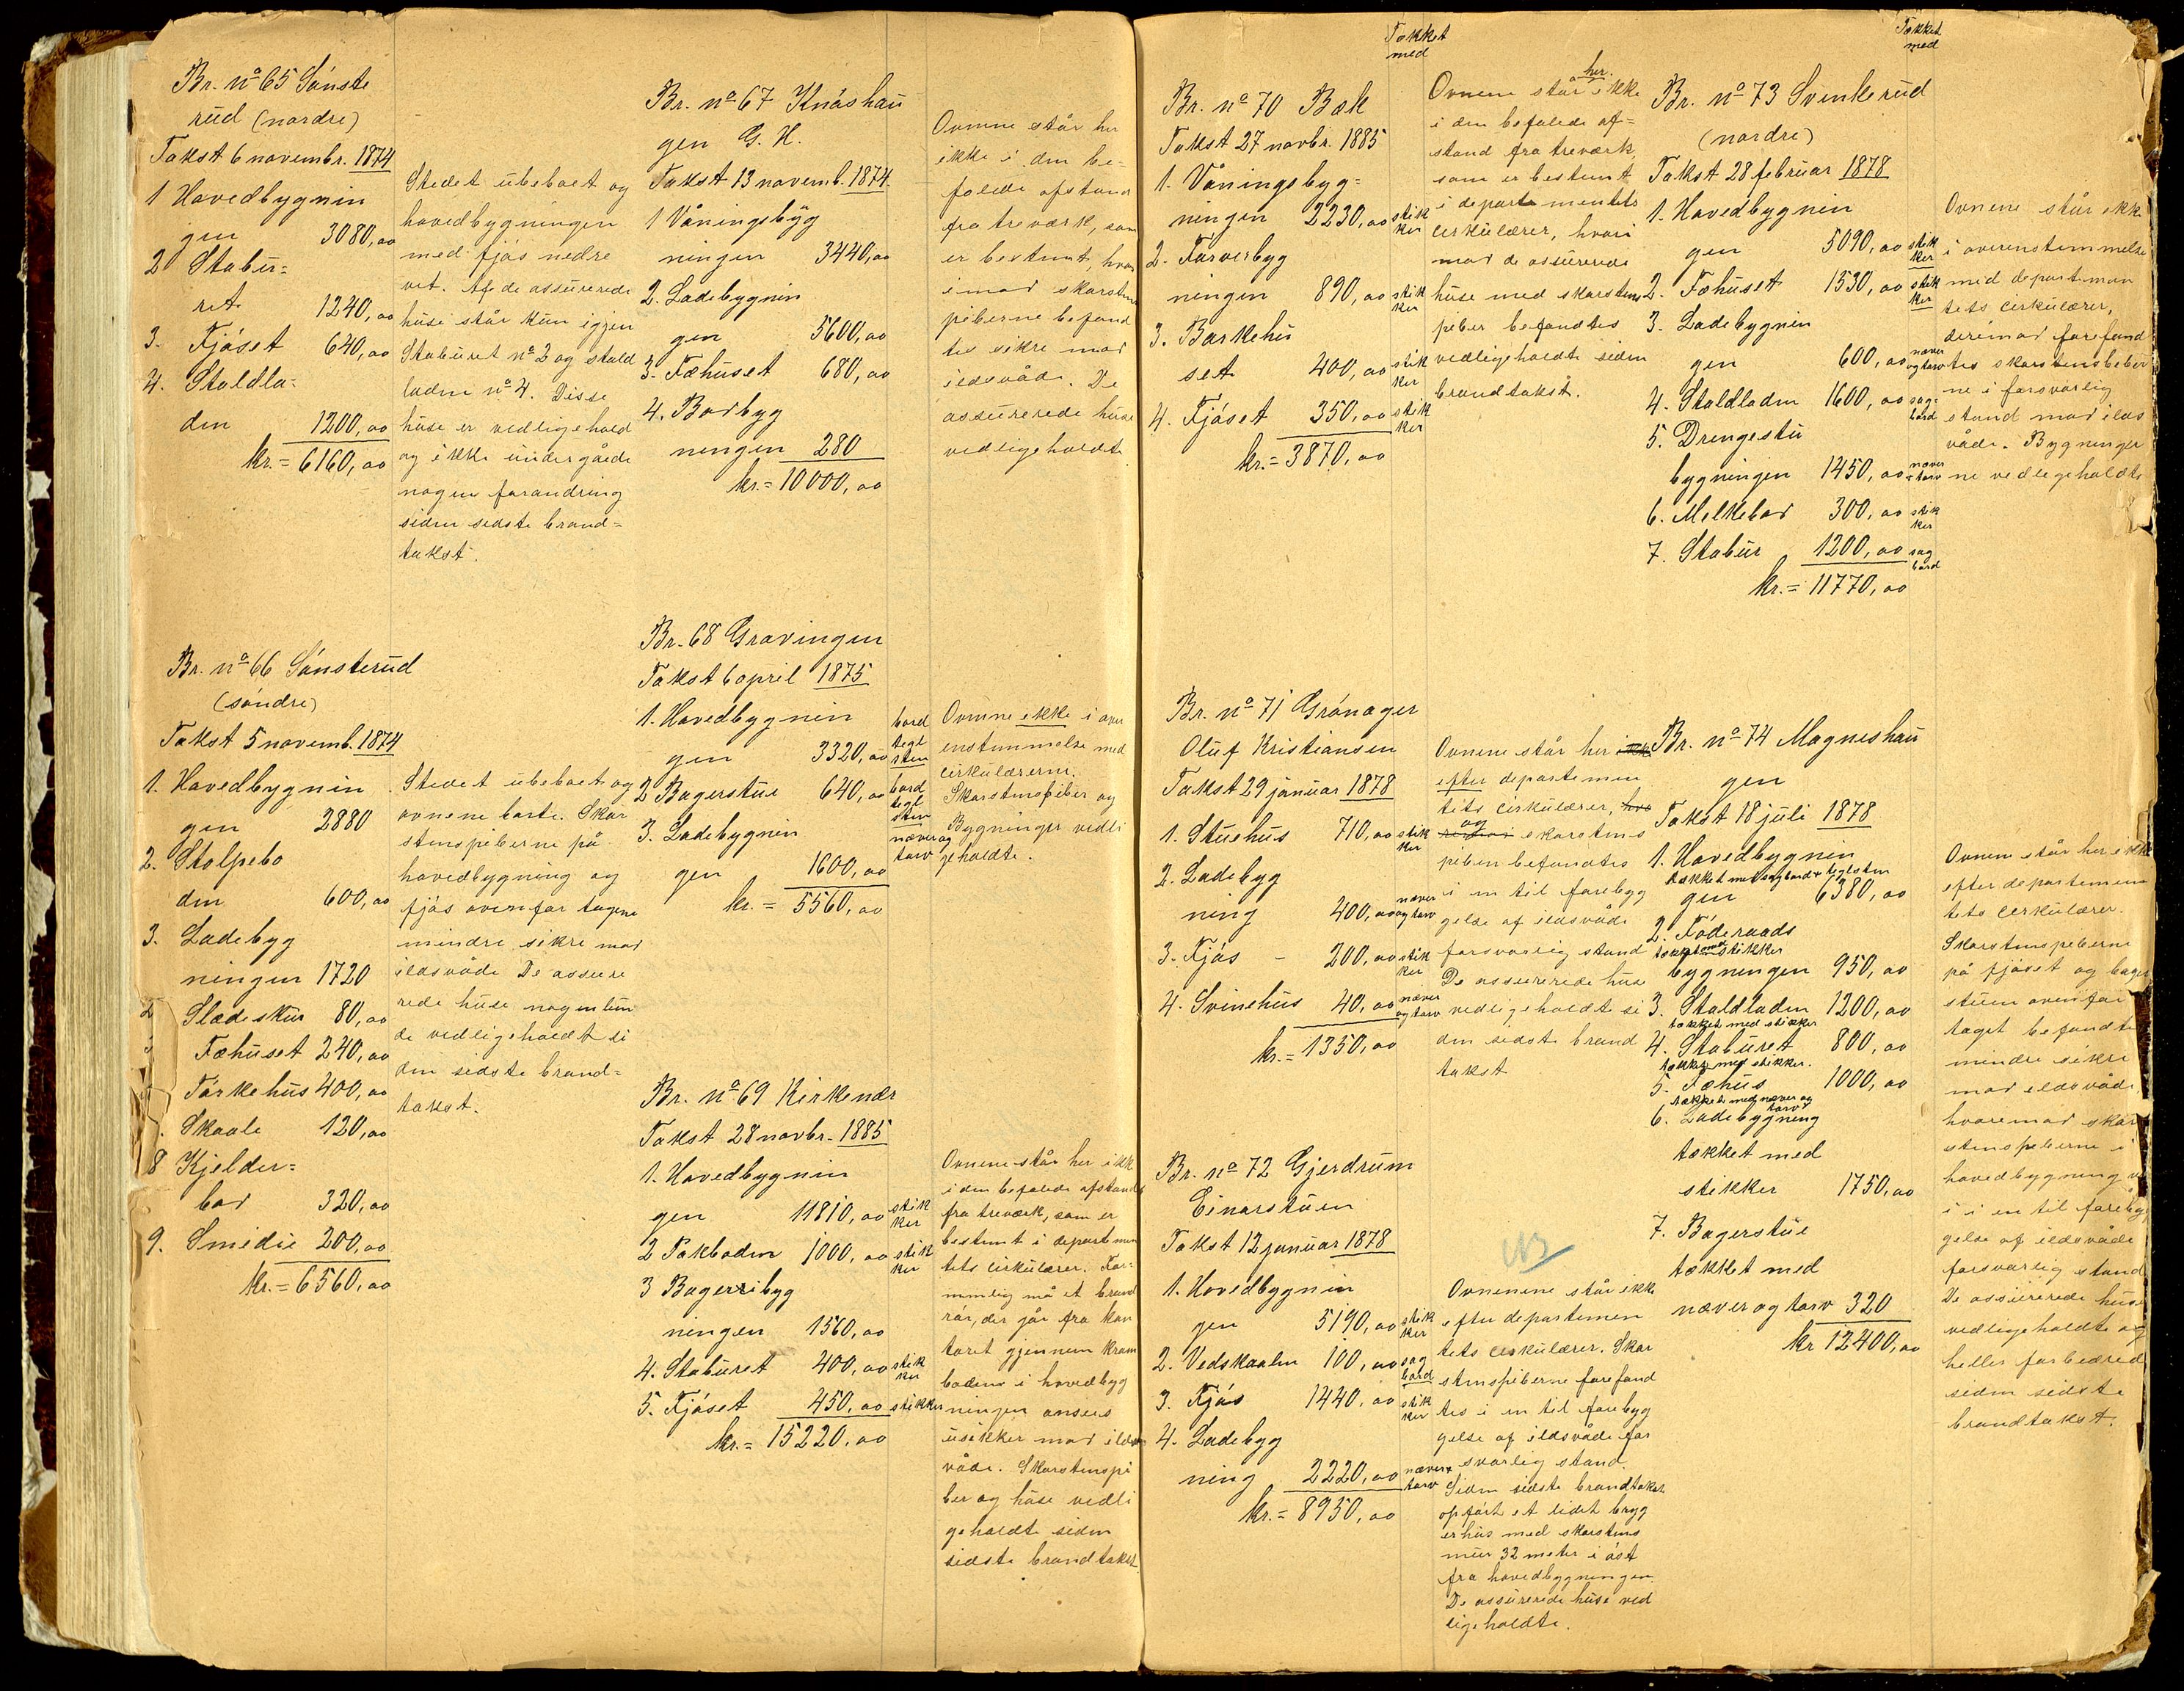 Br. nº 65 Sónste
rud (nordre)
Takst 6 novembr. 1874
1 Hovedbygnin
gen 3080,00
2 Stabu-
ret 1240,00
3. Fjóset 640,00
4. Staldla-
den 1200,00
kr. = 6160,00
Stedet ubeboet og
hovedbygningen
med fjós nedre
vet. Af de assurerede
huse står kun igjen
Staburet nº 2 og stald
laden nº 4. Disse
huse er vedligehold
og ikke undergåede
nogen forandring
siden sidste brand=
takst.
Br. nº 66 Sónsterud
(sóndre)
Takst 5 novemb. 1874
1. Hovedbygnin
gen 2880
2. Stolpebo
den 600,00
3. Ladebyg
ningen 1720
Slædeskur 80,00
Fæhuset 240,00
Tórkehus 400,00
Skaale 120,00
8 Kjelder=
bod 320,00
9. Smedie 200,00
kr. = 6560,00
Stedet ubeboet og
ovnene borte. Skor
stenspiberne på
hovedbygning og
fjós ovenfor tagene
mindre sikre mod
ildsvåde De assure
rede huse nogenlun
de vedligeholdt si
den sidste brand=
takst.
Br. nº 67 Knáshau
gen G. H.
Takst 13 novemb. 1874.
1 Våningsbyg
ningen 3440,00
2. Ladebygnin
gen 5600,00
3. Fæhuset 680,00
4. Bodbyg
ningen 280
kr. = 10000,00
Ovnene står her
ikke i den be-
falede afstand
fra treværk, som
er bestemt, hvor
imod skorstens
piberne befand
tes sikre mod
ildsvåde. De
assurerede huse
vedligeholdte
Br. 68 Gravingen
Takst 6 april 1875
1. Hovedbygnin
gen 3320,00 bord tegl sten
2 Bagerstue 640,00 bord tegl sten
3. Ladebygnin
gen 1600,00 næver og torv
kr. = 5560,00
Ovnene ikke i over
enstemmelse med
cirkulærerne.
Skorstenspiber og
Bygninger vedli
geholdte.
Br. nº 69 Kirkenær
Takst 28 novbr. 1885
1. Hovedbygnin
gen 11810,00 stik ker
2 Pakboden 1000,00 stik ker
3 Bageribyg
ningen 1560,00
4. Staburet 400,00 stik ker
5. Fjóset 450,00 stikker
kr. = 15220,00
Ovnene står her ikke
i den befalede afstand
fra treværk, som er
bestemt i departemen
tets cirkulærer. For=
mentlig må et brand
rór, der går fra kon
toret gjennem kram
boden i hovedbyg
ningen ansees
usikker mod ilds
våde. Skorstenspi
ber og huse vedli
geholdte siden
sidste brandtakst.
Tækket
med
Br. nº 70 Bæk
Takst 27 novbr. 1885
1. Våningsbyg=
ningen 2230,00 stik ker
2. Farverbyg
ningen 890,00 stik ker
3. Barkehu
set 400,00 stik ker
4. Fjóset 350,00 stik ker
kr. = 3870,00
Ovnene står her ikke
i den befalede af=
stand fra treværk,
som er bestemt
i departementets
cirkulærer, hvori
mod de assurerede
huse med skorstens
piber befandtes
vedligeholdte siden
brandtakst.
Br. nº 71 Grónager
Oluf Kristiansen
Takst 29 januar 1878
1. Stuehus 710,00 stik ker
2. Ladebyg
ning 400,00 næver og torv
3. Fjós - 200,00 stik ker
4. Svinehus 40,00 næver og torv
kr. = 1350,00
Ovnene står her ikke
efter departemen
tets cirkulærer, hvo
og skorstens
piben befandtes
i en til forebyg
gelse af ildsvåde
forsvarlig stand
De assurerede huse
vedligeholdt si
den sidste brand
takst
Br. nº 72 Gjerdrum
Einarstuen
Takst 12 januar 1878
1. Hovedbygnin
gen 5190,00 stik ker
2. Vedskaalen 100,00 sag bord
3. Fjós 1440,00 stik ker
4. Ladebyg
ning 2220,00 næver + torv
kr. = 8950,00
NB
Ovnenene står ikke
efter departemen
tets cirkulærer. Skor
stenspiberne forefand
tes i en til forebyg
gelse af ildsvåde for
svarlig stand.
Siden sidste brandtakst
opfórt et lidet bryg
erhus med skorstens
mur 32 meter i óst
fra hovedbygningen.
De assurerede huse ved
ligeholdte.
Tækket
med
Br. nº 73 Svenkerud
(nordre)
Takst 28 februar 1878
1. Hovedbygnin
gen 5090,00 stik ker
2. Fæhuset 1530,00 stik ker
3. Ladebygnin
gen 600,00 næver og torv
4. Staldladen 1600,00 sag bord
5. Drengestu
bygningen 1450,00 næver + torv
6. Melkebod 300,00 stik ker
7. Stabur 1200,00 sag bord
kr. = 11770,00
Ovnene står ikke
i overenstemmelse
med departemen
tets cirkulærer,
derimod forefand
tes skorstenspiber
ne i forsvarlig
stand mod ilds
våde. Bygninger
ne vedligeholdte
Br. nº 74 Magneshau
gen
Takst 18 juli 1878
1. Hovedbygnin
tækket med sagbord + teglsten
gen 6380,00
2. Fóderaads
tækket med stikker
bygningen 950,00
3. Staldladen 1200,00
tækket med stikker
4. Staburet 800,00
tækket med stikker.
5. Fæhus 1000,00
tækket med næver og torv
6. Ladebygning
tækket med
stikker 1750,00
7. Bagerstue
tækket med
næver og torv 320
kr 12400,00
Ovnene står her ikke
efter departemen
tets cirkulærer.
Skorstenspiberne
på fjóset og bager
stuen ovenfor
taget befandtes
mindre sikre
mod ildsvåde
hvorimod skor
stenspiberne i
hovedbygning
i en til foreby
gelse af ildsvåde
forsvarlig stand
De assurerede huse
vedligeholdte og
heller forbedrede
siden sidste
brandtakst.